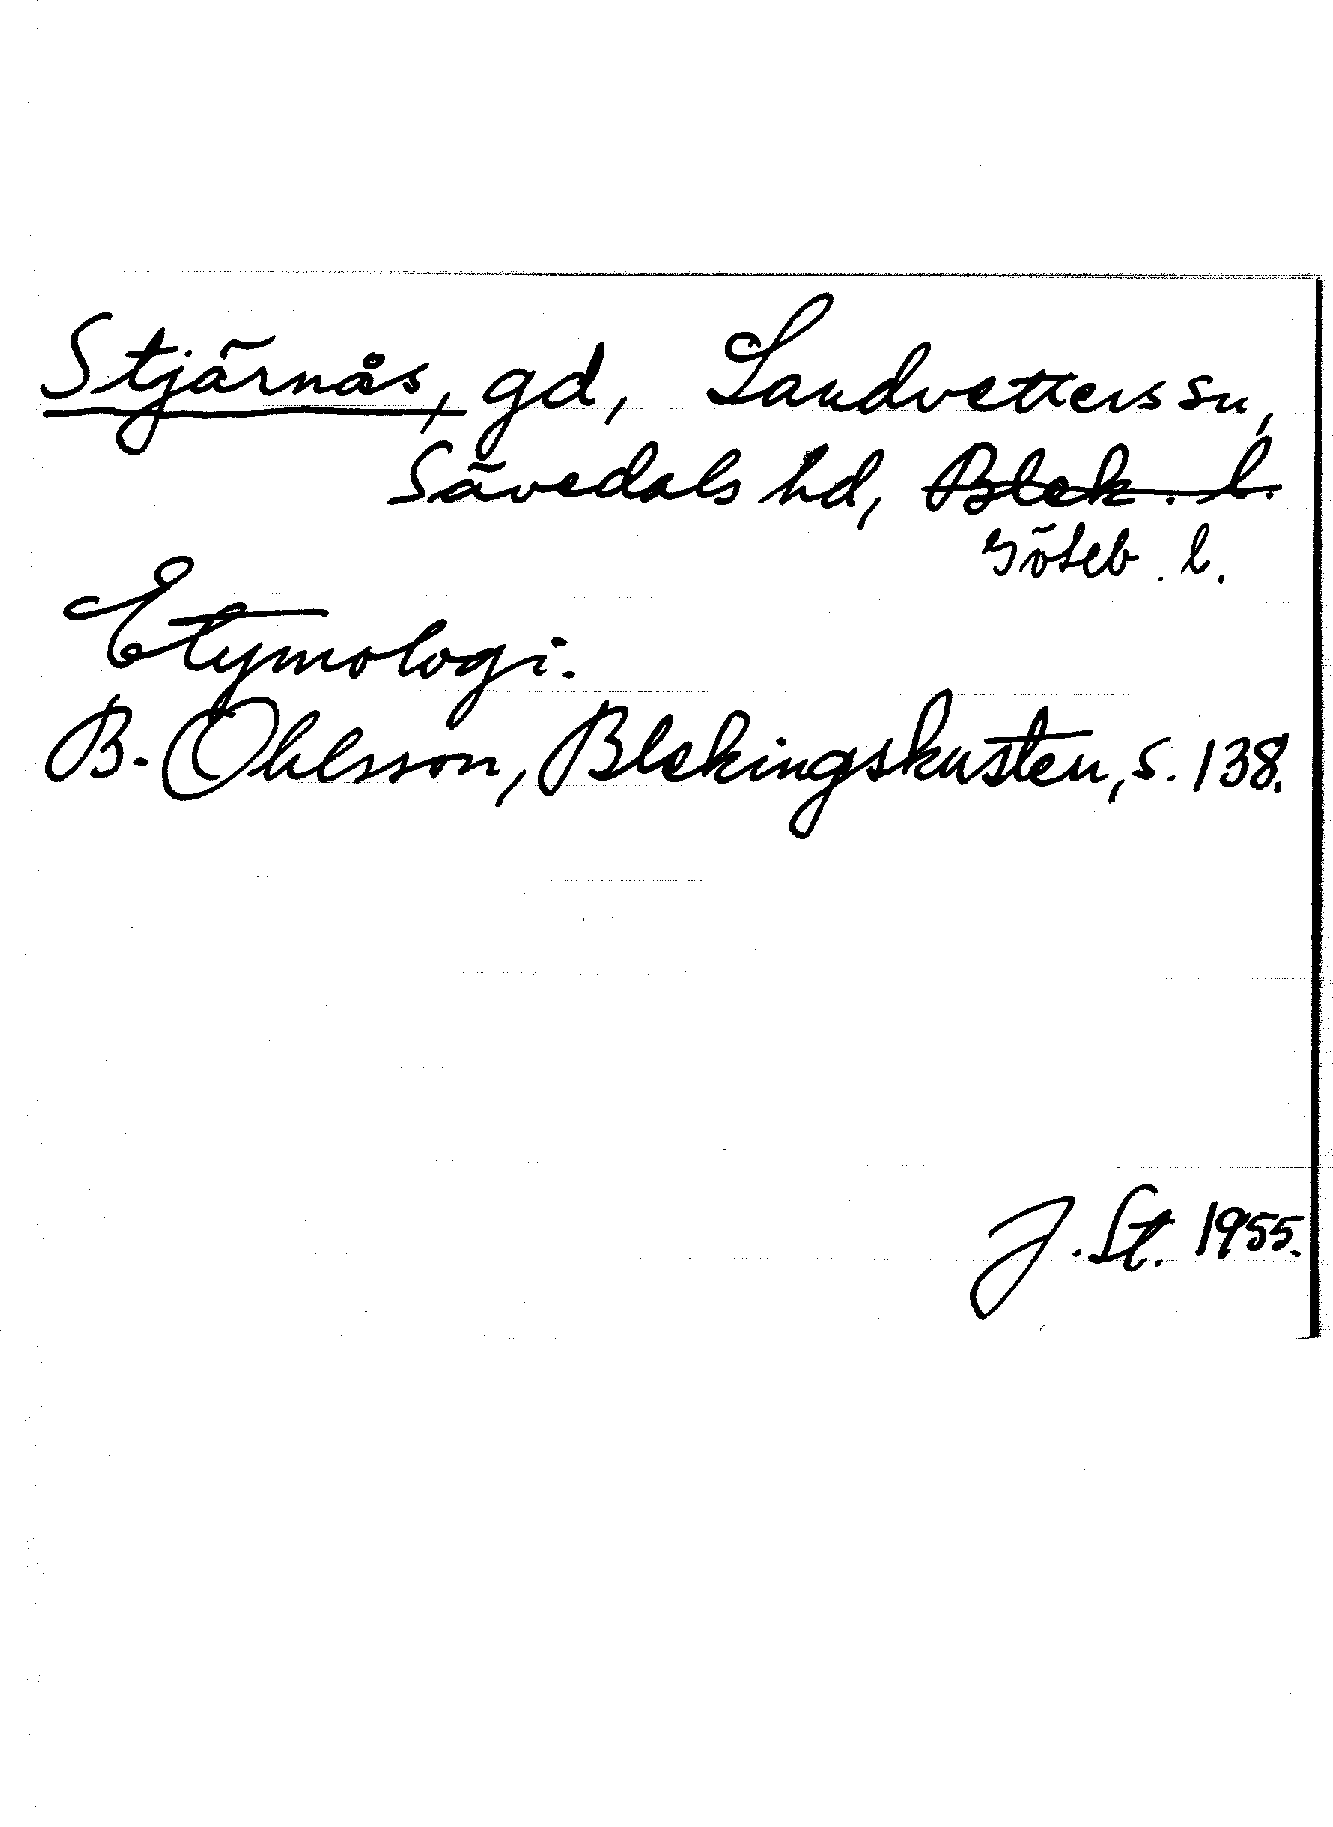 Stjärnås, gd, Landvetters sn,
Sävedals hd, Blek. l.
Göteb. l.
Etymologi.
B. Ohlsson, Blekingskusten, s. 138.
J. St. 1955.